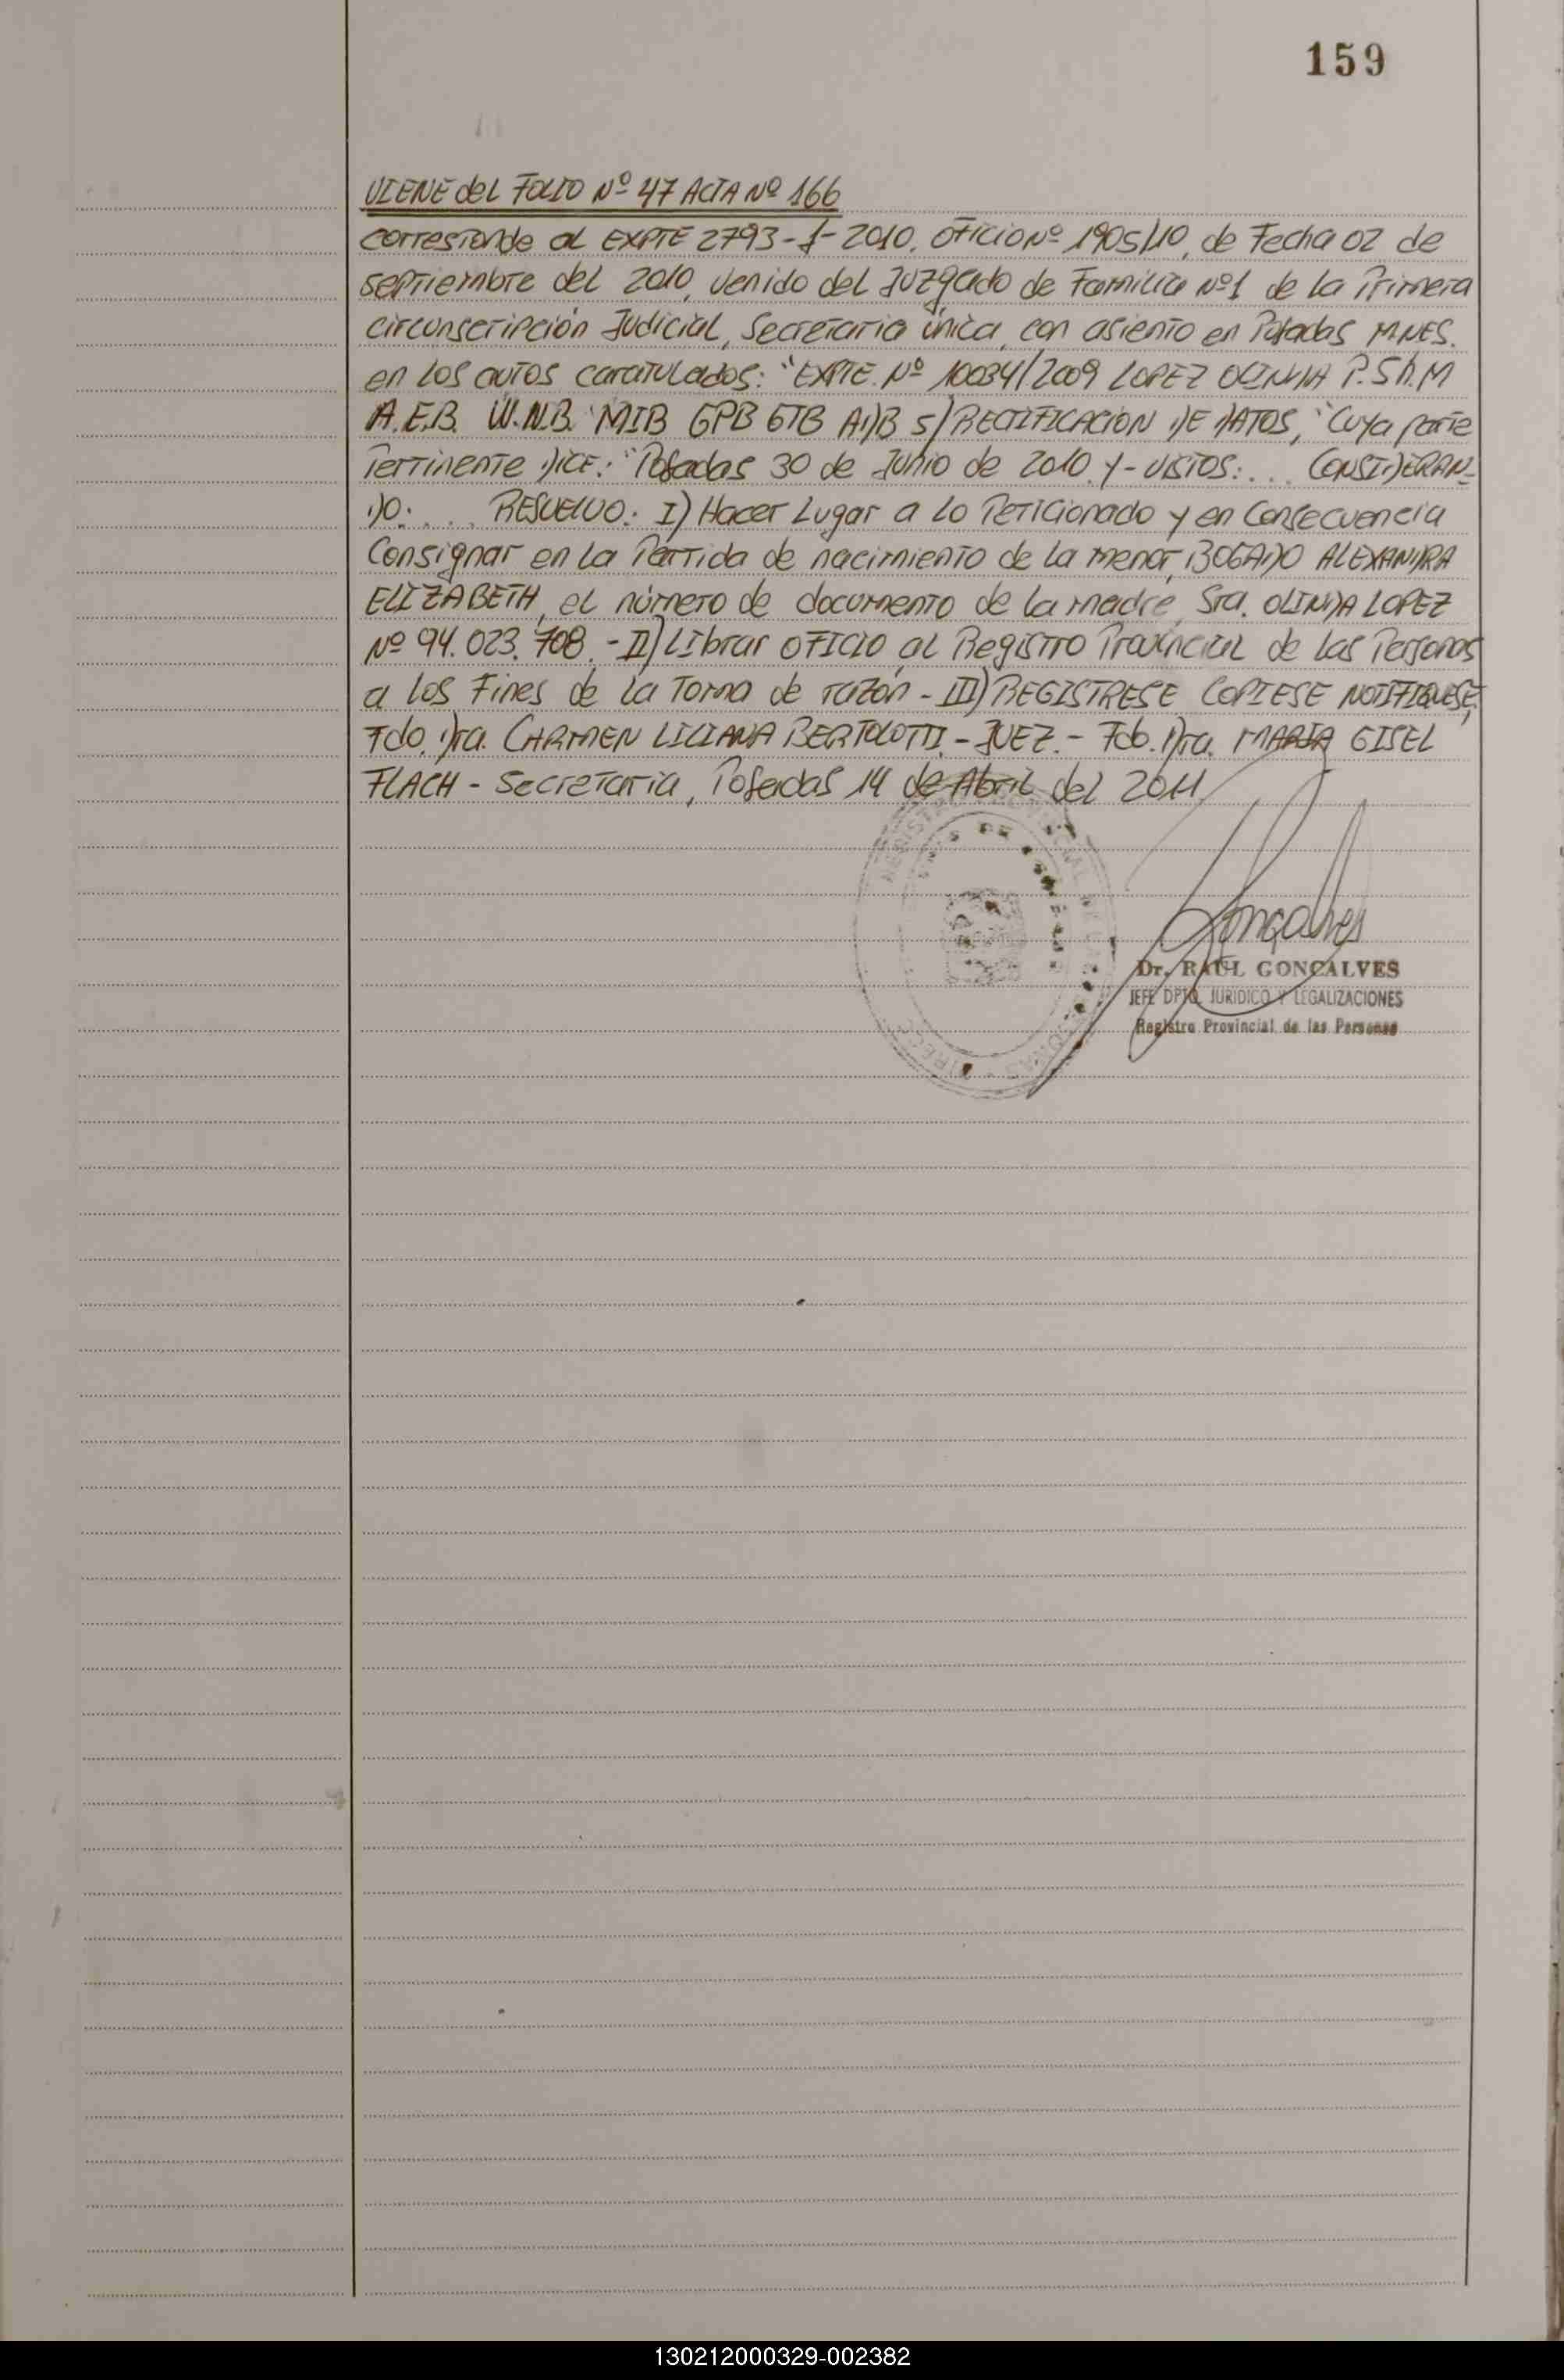 159
VIENE del FOLIO Nº 47 ACTA Nº 166
corresponde al EXPTE 2793-J-2010, OFICIO Nº 1905/10, de Fecha 02 de
septiembre del 2010, venido del Juzgado de Familia Nº1 de la Primera
circunscripción Judicial, Secretaria única, con asiento en Posadas MNES.
en los autos caratulados: "EXPTE. Nº 10034/2009 LOPEZ OLINDA P.Sh.M
A.E.B. W.N.B. MIB GPB GTB ADB S/RECTIFICACION DE DATOS," Cuya parte
Pertinente DICE: "Posadas 30 de Junio de 2010 Y- VISTOS:... CONSIDERAN-
DO:.... RESUELVO: I) Hacer Lugar a lo Peticionado y en Consecuencia
Consignar en la Partida de nacimiento de la menor, BOGADO ALEXANDRA
ELIZABETH, el número de documento de la madre, Sra. OLINDA LOPEZ
Nº 94.023.708.-II) Librar OFICIO al Registro Provincial de las Personas
a los Fines de la Toma de razón - III) REGISTRESE COPIESE NOTIFIQUESE,
Fdo. Dra. CARMEN LILIANA BERTOLOTTI - JUEZ.- Fdo. Dra. MARIA GISEL
FLACH - Secretaria, Posadas 14 de Abril del 2011
Goncalves
Dr. RAUL GONCALVES
JEFE DPTO. JURIDICO Y LEGALIZACIONES
Registro Provincial de las Personas
130212000329-002382